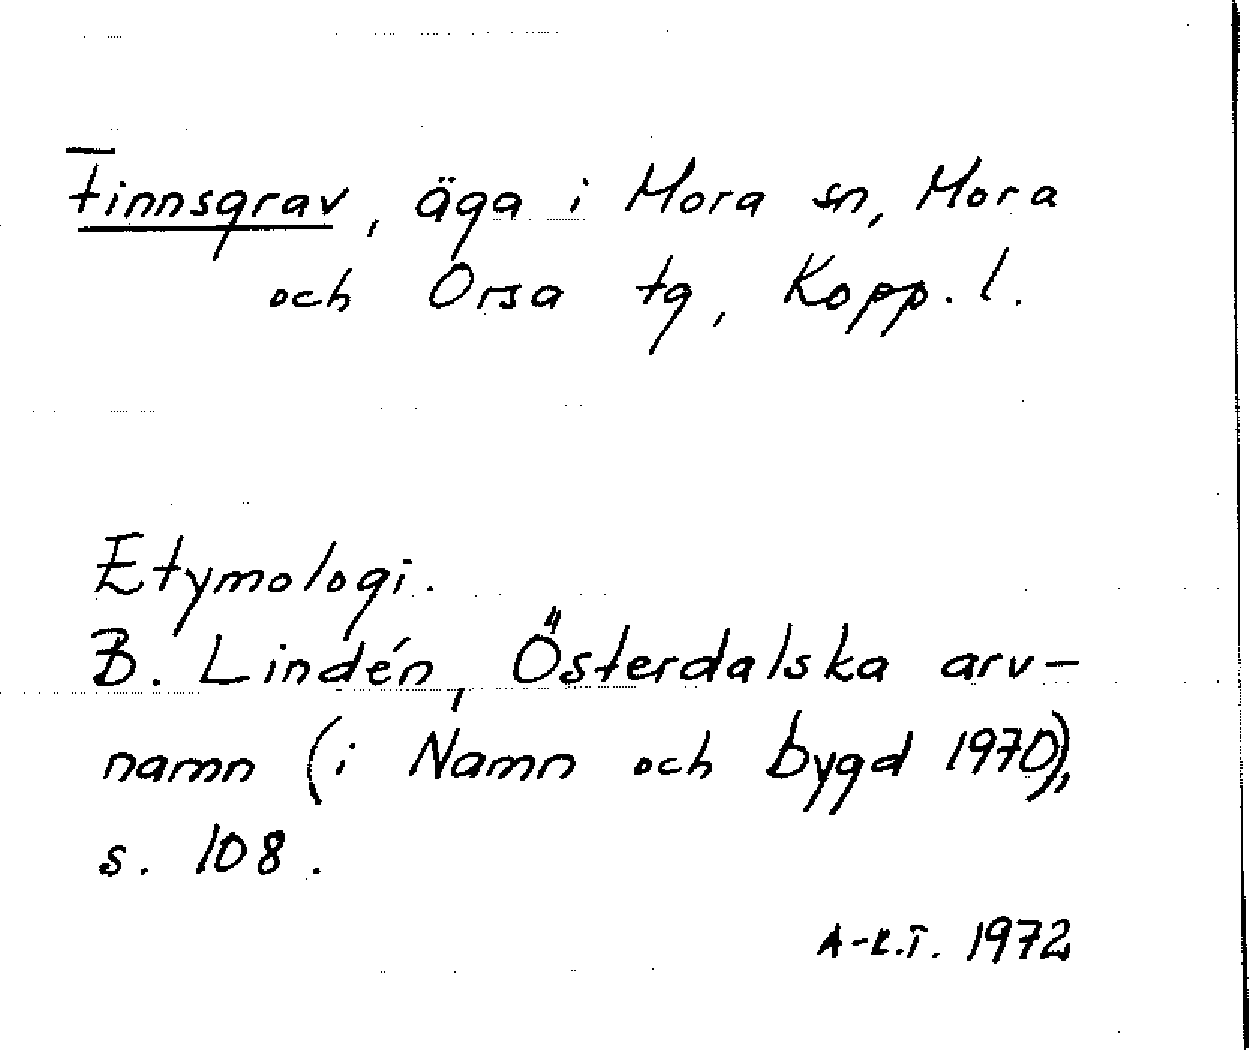 Finnsgrav, äga i Mora sn, Mora
och Orsa tg, Kopp. l.
Etymologi.
B. Lindén, Österdalska arv-
namn (i Namn och bygd 1970),
s. 108.
A-K.T. 1972